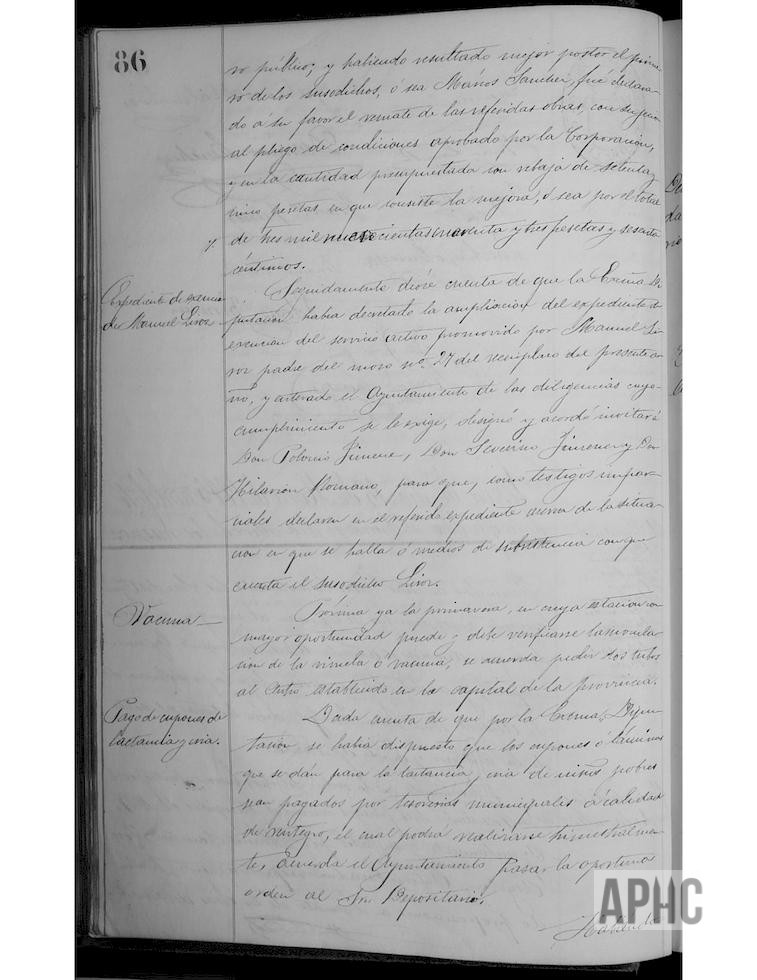 86
ro público; y habiendo resultado mejor postor el prime-
ro de los susodichos, ó sea Mános Sancher, fué declara-
do á su favor el remate de las referidas obras, con sujecion
al pliego de condiciones aprobado por la Corporacion,
y en la cantidad presupuestada con rebaja de setenta y
cinco pesetas en que consiste la mejora, ó sea por el total
de tres mil nuevecientas noventa y tres pesetas y sesenta
céntimos.
Expediente de exencion
de Manuel Liror
Seguidamente dióse cuenta de que la Exema. Di-
putacion habia decretado la ampliacion del expediente de
exencion del servicio activo promovido por Manuel Li-
ror padre del mozo nº. 27 del reemplazo del presente a-
ño, y enterado el Ayuntamiento de las diligencias cuyo
cumplimiento se le exige, designó y acordó invitar á
Don Polonio Jimene, Don Severino Jimener y Don
Hilarion Romano, para que, como testigos impar-
ciales declaren en el referido expediente acerca de la situa-
cion en que se halla ó medios de subsistencia con que
cuenta el susodicho Liror.
Vacuna
Próxima ya la primavera, en cuya estacion con
mayor oportunidad puede y debe verificarse la inocula-
cion de la viruela ó vacuna, se acuerda pedir dos tubos
al Centro establecido en la capital de la provincia.
Pago de cupones de
lactancia y cria.
Dada cuenta de que por la Exema. Dipu-
tacion se habia dispuesto que los cupones ó láminas
que se dán para la lactancia y cria de niños pobres
sean pagados por tesorerias municipales á calidad
de reintegro, el cual podrá realizarse trimestralmen-
te, acuerda el Ayuntamiento pasar la oportuna
orden al Sr. Depositario.
APHC